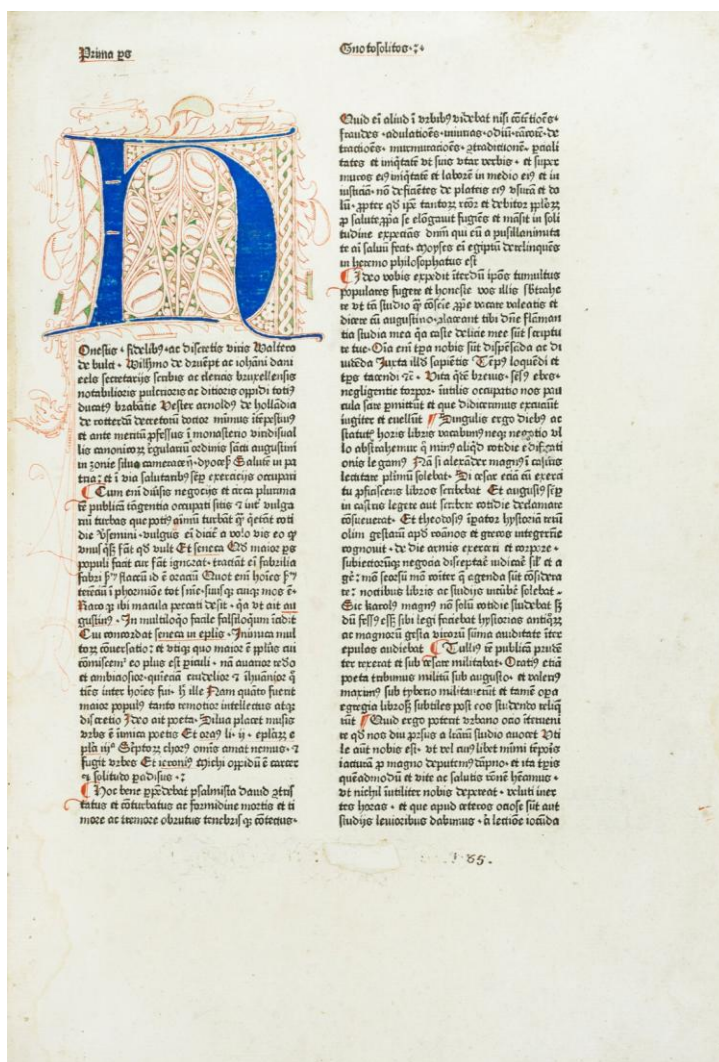 Prima ps
Gnotosolitos
H
Onestis fidelibꝰ ac discretis viris Waltero
de bult Wilhmo de druenpt ac iohani dani
eels secretarijs scribis ac clericis bruxellensis
notabilioris pulcrioris ac ditioris oppidi totiꝰ
ducatꝰ brabātie Vester arnoldꝰ de hollādia
de rotterdā decretoꝝ doctor minimus
et ante meritū ꝓfessus ī monasterio viridisual
lis canonicoꝝ regulariū ordinis sancti augustini
in zonie silua Salutē in pa
tria et ī via salutaribꝰ sꝑ exercicijs occupari
Cum eni diūsis negocijs et circa plurima
re publicā tāgentia occupati sitis ⁊ int vulga
riū turbas que potiꝰ aīmū turbāt q̄ qetāt coti
die vulgus eī dicit a volo vis eo q̄
vnusqsq̄ fāt qd vult Et seneca Qd maior ps
populi facit cur fāt ignorat tractāt eī fabrilia
fabri
tot suusq̄ cuiq̄ mos ē
Raro q̄ ibi macula peccati desit qa vt ait au
gustinꝰ In multiloqo facile falsiloquiū icidit
Cui concordat seneca in eplis Inimica mul
toꝝ cōuersatio et vtiq̄ quo maior ē ppls̄ cui
cōmiscemꝰ eo plus est piculi nā auarior redeo
et ambiciosior crudelior ⁊ ihumanior q̄
inter hoies fui h ille Nam quāto fuerit
maior populꝰ tanto remotior intellectus atq̄
discretio Ideo ait poeta Silua placet musis
vrbs ē inimica poetis Et oraꝰ li ij eplaꝝ
Scptoꝝ chorꝰ omis amat nemus ⁊
fugit vrbes Et ieronimꝰ Michi oppidū ē carcer
⁊ solitudo padisus
Hoc bene ppēdebat psalmista dauid
status et cōturbatus ac formidine mortis et ti
more ac tremore obrutus tenebrisq̄ cōtectus
Quid eī aliud ī vrbibꝰ videbat nisi cōtētiōes
fraudes adulatiōes iniurias odiū rācorē de
tractiōes murmuraciōes ꝓditionē pciali
tates et iniqtatē vt suis vtar verbis et super
muros eiꝰ iniqtatē et laborē in medio eiꝰ et in
iusticiā nō deficiētes de plateis eiꝰ vsurā et do
lū ppter qd ipe tantoꝝ rcor et debitor
p salute ppa se elōgauit fugiēs et māsit in soli
tudine expectās dnm qui eū a pusillanimita
te aī saluū fecit Moyses eī egiptū derelinquēs
in heremo philosophatus est
Ideo vobis expedit iterdū ipos tumultus
populares fugere et honeste vos illis sbtrahe
re vt tā studio q̄ cōscie ppe vacare valeatis et
dicere cū augustino placeant tibi dne flāman
tia studia mea qa caste delicie mee sūt scriptu
re tue Oīa enī tpa nobis sūt dispēsāda ac di
uidēda Juxta illd sapiētis Tēpꝰ loquēdi et
tpꝰ tacendi ⁊c Vita qdē breuis sēsꝰ ebes
negligentie torpor iutilis occupatio nos pau
cula scire pmittūt et que didicerimus excutiūt
iugiter et euellūt Singulis ergo diebꝰ ac
statutꝭ horis libris vacabimꝰ neq̄ negotio vl
lo abstrahemur q̄ minꝰ aliqd cotidie edificati
onis legamꝰ Nā si alexāder magnꝰ ī castris
lectitare plimū solebat Si cesar etiā cū exerci
tu pficiscens libros scribebat Et augustꝰ sꝑ
in castris legere aut scribere cotidie declamare
cōsueuerat Et theodosꝰ ipator hystoriā reiū
olim gestarū apd roanos et grecos integerrime
cognouit de die armis exerceri et corpore
subiectoruq̄ negocia disceptās iudicare sil et a
gē mō seorsū mō cōiter q̄ agenda sūt cōsidera
re noctibus libris ac studijs icūbē solebat
Sic karolꝰ magnꝰ nō solū cotidie studebat sꝫ
dū fessꝰ essꝫ sibi legi faciebat hystorias antiqoꝝ
ac magnorū gesta viroꝝ suma auditate iter
epulas audiebat Tulliꝰ re publicā pruden
ter rexerat et sub cesare militabat Oratiꝰ etiā
poeta tribunus militū sub augusto et valeriꝰ
maximꝰ sub tyberio militauerūt et tamē opa
egregia librosq̄ subtiles post eos studendo reliq
rūt Quid ergo poterit vrbano ocio iterueni
re qd nos diu prsus a licitū studio auocet Vti
le aut nobis est vt vel cuiꝰlibet minimi tēpoꝭs
iacturā p magno deputemꝰ dāpno et ita tpis
quēadmodū et vite ac salutis ronē heāmus
vt nichil iutiliter nobis depereat veluti iner
tes horas et que apud ceteros ociose sūt aut
studijs leuioribus dabimus a lectiōe iocūda
85.